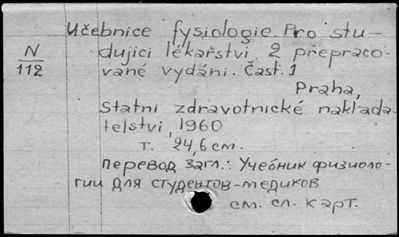 Učebnice fysiologie. Pro stu-
N
112
dující lékařství. 2 přepraco-
vané vydáni. Čast. 1
Praha,
Statni zdravotnické naklada-
telstvi, 1960
т. 24,6 см.
перевод загл.: Учебник физиоло-
гии для студентов-медиков
см. сл. карт.